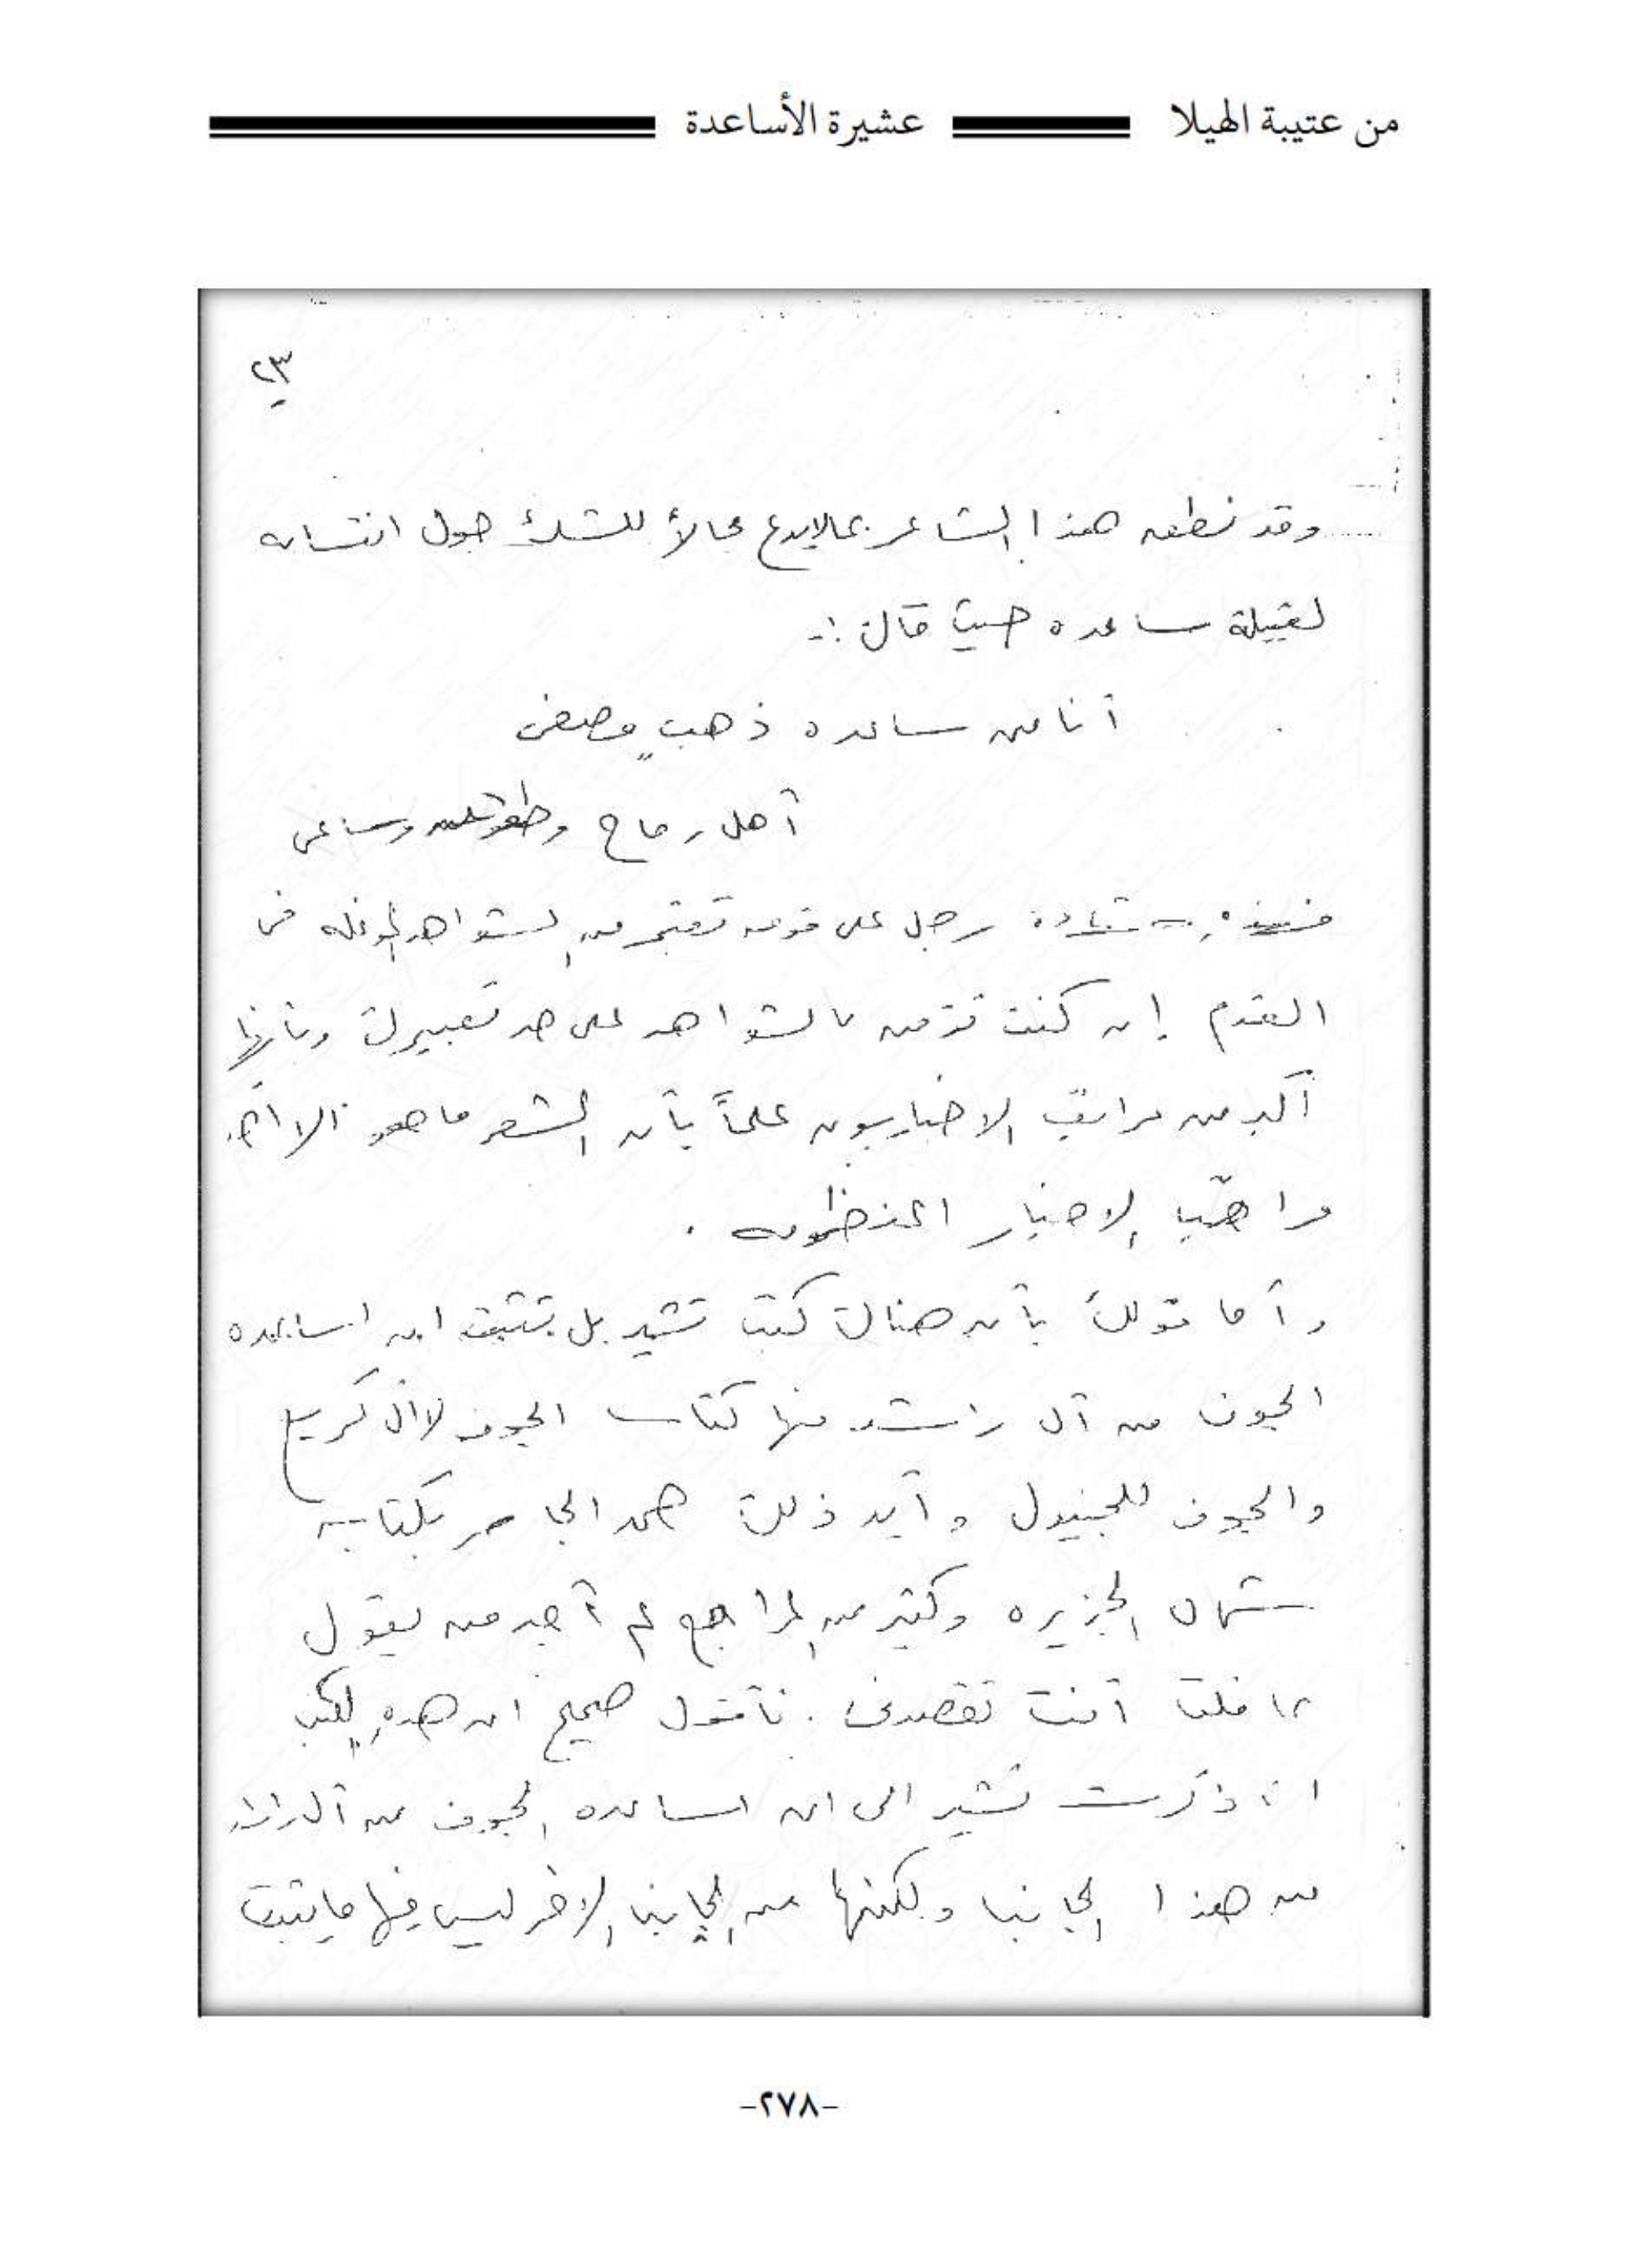 من عتيبة الهيلا عشيرة الأساعدة
٢٣
وقد نطق هذا الشاعر بمالايدع مجالاً للشك حول انتسابه
لقبيلة ساعده حيث قال :-
أنا من ساعده ذهبٍ مصفى
أهل رماح وساعى
فهذه شهادة رجل على قومه تعتبر من الشواهد الموغله فى
القدم إن كنت تؤمن بالشواهد على حد تعبيرك وبأنها
أكبر من مراتب الاخباريون علماً بأن الشعر ماهو الا أحد
مراتب الاخبار المنظومه .
وأما قولك بأن هناك كتب تشير بل تثبت ان اساعده
الجوف من آل راشد منها كتاب الجوف لاال كريع
والجوف للجنيدل وأيد ذلك حمد الجاسر بكتابه
شمال الجزيره وكثير من المراجع لم أجد من يقول
بما قلت أنت تقصدنى . فأقول صحيح ان هذه الكتب
ان ذكرت تشير الى ان اساعده الجوف من آل راشد
من هذا الجانب ولكنها من الجانب الاخر ليس فيها مايثبت
-٢٧٨-